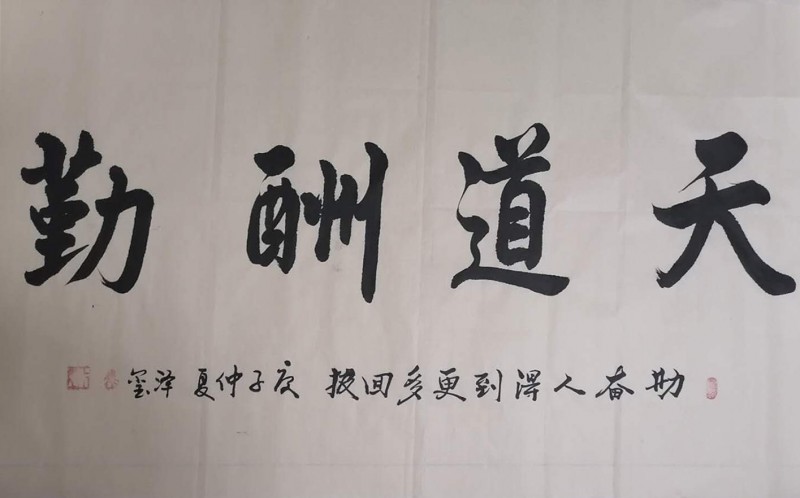 天道酬勤
勤奋人得到更多回报 庚子仲夏 泽